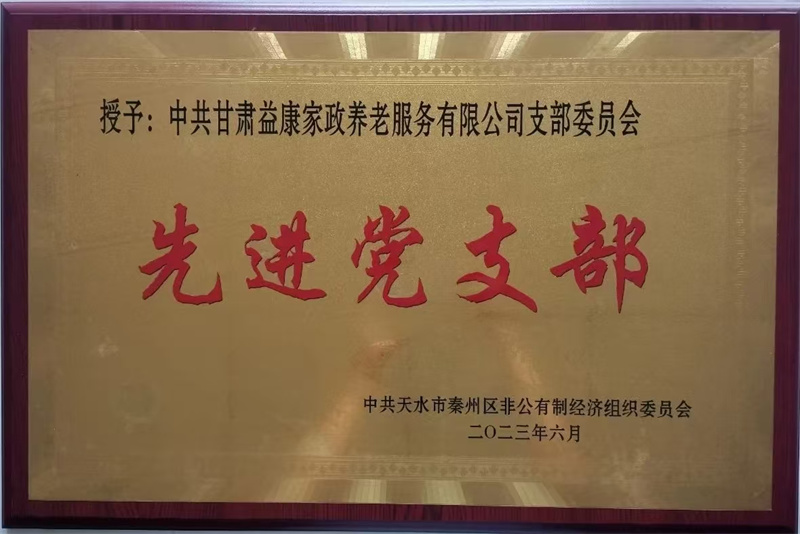 授予：中共甘肃益康家政养老服务有限公司支部委员会
先进党支部
中共天水市秦州区非公有制经济组织委员会
二〇二三年六月